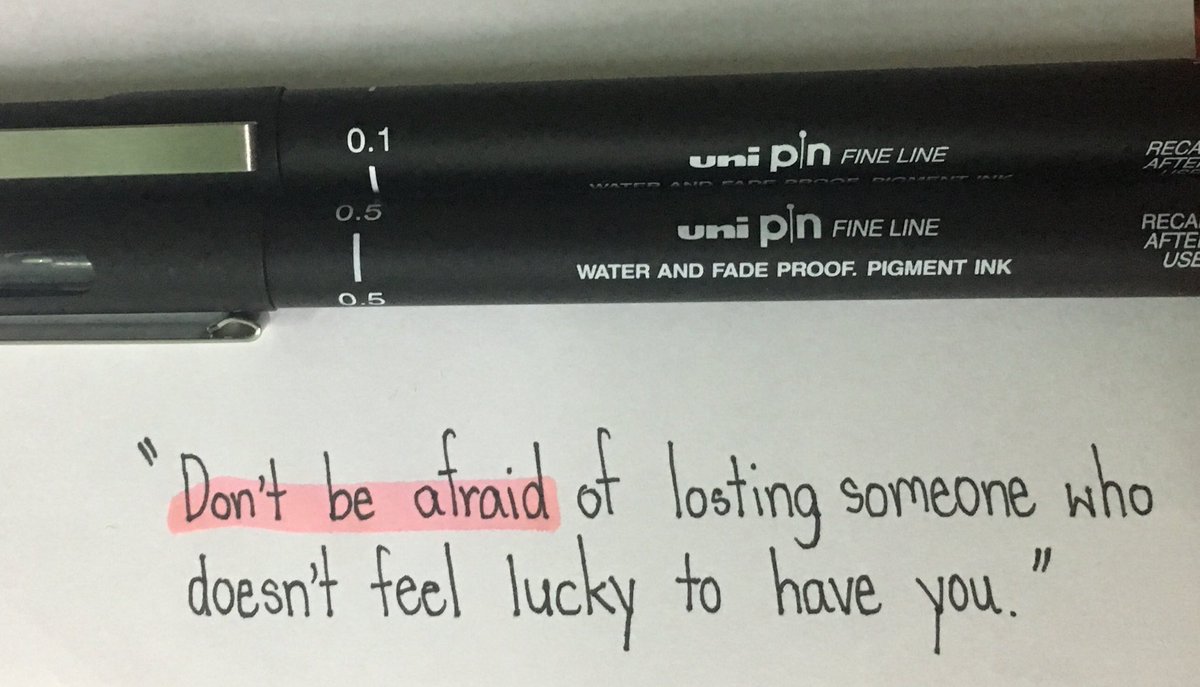 0.1
uni pin FINE LINE
WATER AND FADE PROOF. PIGMENT INK
0.5
uni pin FINE LINE
WATER AND FADE PROOF. PIGMENT INK
0.5
RECA
AFTE
USE
RECA
AFTE
USE
"Don't be afraid of losting someone who
doesn't feel lucky to have you."